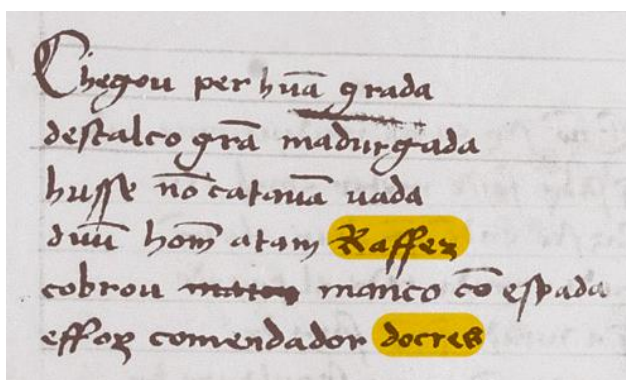 Chegou per hũa grada
descalco grã madurgada
husse nõ catauã uada
dũu homẽ atam Raffez
cobrou manco cõ espada
effoz comendador docres